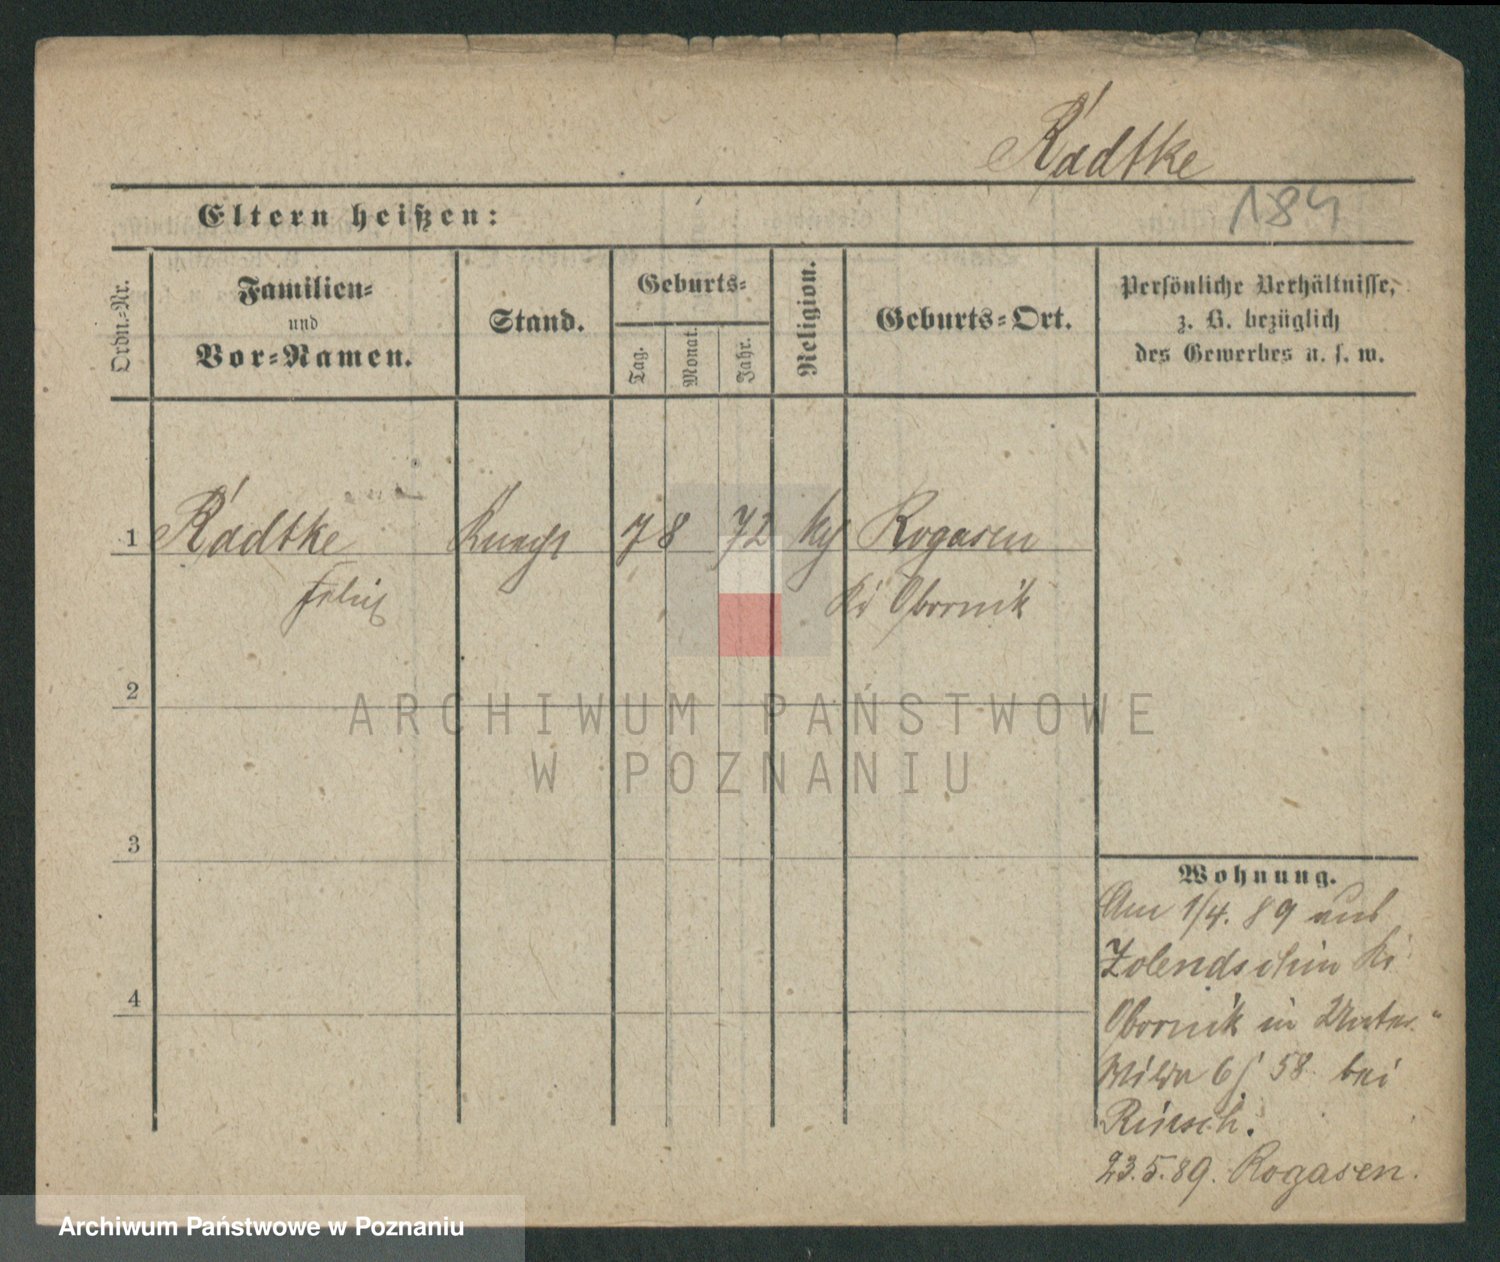 Radtke
184
Eltern heißen:
Ordn.-Nr.
Familien-
und
Vor-Namen.
Stand.
Geburts-
Tag.
Monat.
Jahr.
Religion.
Geburts-Ort.
Persönliche Verhältnisse,
z. B. bezüglich
des Gewerbes u. s. w.
1 Radtke Knecht 7 8 72 kth Rogasen
Felix Kr Obornik
2
3
4
Wohnung.
Am 1/4. 89 aus
Kr
Obornik in Unter-
Wilda 58 bei
23.5.89. Rogasen.
ARCHIWUM PAŃSTWOWE
W POZNANIU
Archiwum Państwowe w Poznaniu